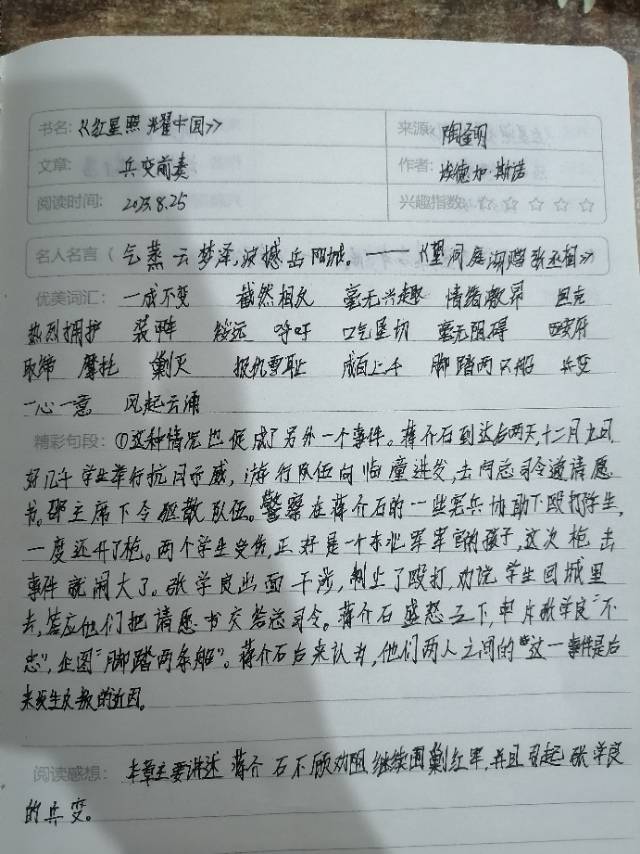 书名:《红星照耀中国》 来源: 陶圣明
文章: 兵变前奏 作者: 埃德加·斯诺
阅读时间: 2023.8.25 兴趣指数: ☆ ☆ ☆ ☆ ☆
名人名言( 气蒸云梦泽,波撼岳阳城。——《望洞庭湖赠张丞相》
优美词汇: 一成不变 截然相反 毫无兴趣 情绪激昂 坦克
热烈拥护 装脾 绥远 呼吁 口气坚切 毫无阻碍
取缔 摩托 剿灭 报机雪耻 成百上千 脚踏两只船 兵变
一心一意 风起云涌
精彩句段: ①这种情况也促成了另外一个事件。蒋介石到达后两天,十二月九日,
好几千学生举行抗日示威,游行队伍向临潼进发,去向总司令递请愿
书。邵主席下令驱散队伍。警察在蒋介石的一些宪兵协助下殴打学生,
一度还开了枪。两个学生受伤,正好是一个东北军军官的孩子,这次枪击
事件就闹大了。张学良出面干涉,制止了殴打,劝说学生回城里
去,答应他们把请愿书交给总司令。蒋介石盛怒之下,申斥张学良“不
忠”,企图“脚踏两条船”。蒋介石后来认为,他们两人之间的这一事件是后
来发生反叛的近因。
阅读感想: 本章主要讲述蒋介石不顾劝阻,继续围剿红军,并且引起张学良
的兵变。